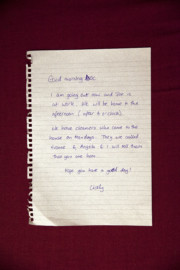 Good morning
I am going out now and Dan is
at work. We will be home in the
afternoon (after 3 o'clock).
We have cleaners who come to the
house on Mondays. They are called
& Angela & I will tell them
that you are here.
Hope you have a good day!